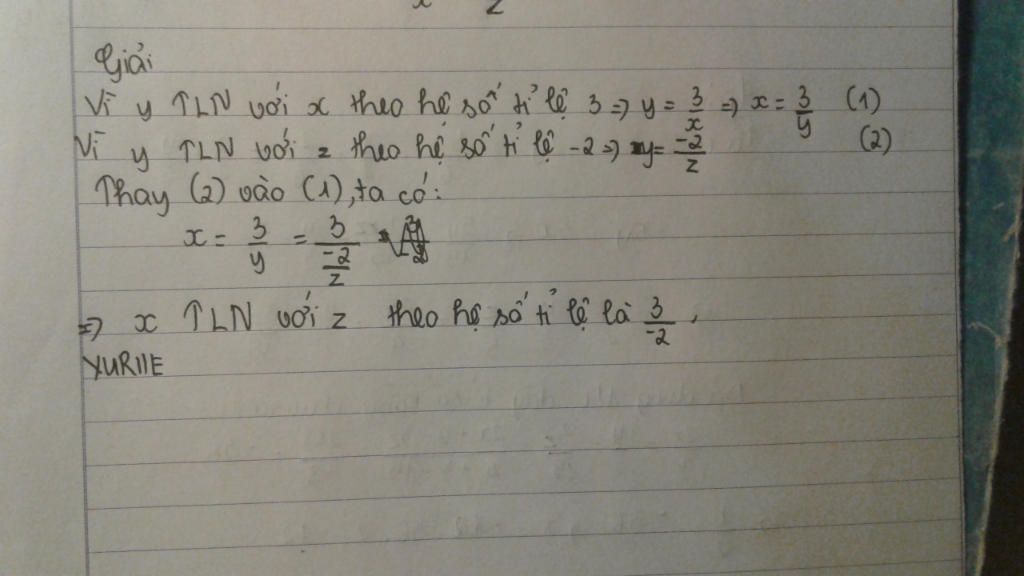 x 2
Giải
Vì y TLN với x theo hệ số tỉ lệ 3 => y = 3/x => x = 3/y (1)
Vì y TLN với z theo hệ số tỉ lệ -2 => y = -2/z (2)
Thay (2) vào (1), ta có:
x = 3/y = 3/(-2/z)
=> x TLN với z theo hệ số tỉ lệ là 3/-2.
YURIIE